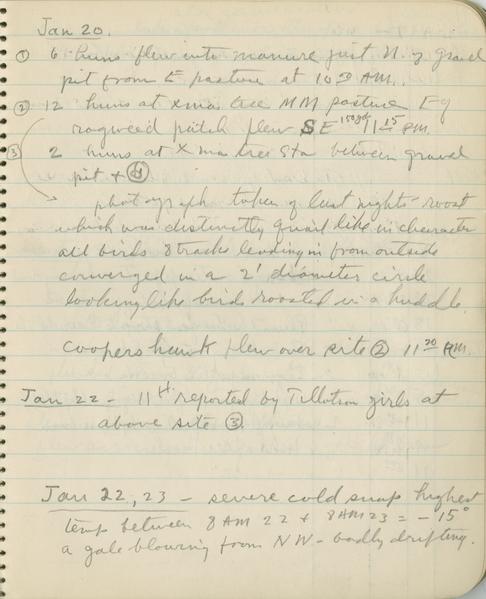 Jan 20.
① 6 huns flew into manure just N. of gravel
pit from E pasture at 10 50 AM.
② 12 huns at xmas tree MM pasture E of
ragweed patch flew SE 150 yd 11 15 PM.
③ 2 huns at Xmas tree Sta between gravel
pit +
photograph taken of last nights roost
which was distinctly quail like in character
all birds 8 tracks leading in from outside
converged in a 2' diameter circle
looking like birds roosted in a huddle.
Coopers hawk flew over site ② 11 20 AM.
Jan 22 - 11 H. reported by Tillotson girls at
above site ③.
Jan 22, 23 - severe cold snap highest
temp between 8 AM 22 + 8 AM 23 = -15°
a gale blowing from NW - badly drifting.